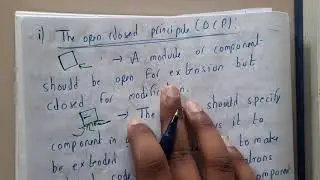 i) The open closed principle (OCP):
→ A module or component
should be open for extension but
closed for modification.
→ The should specify
component in it to
be extended to make
code
component